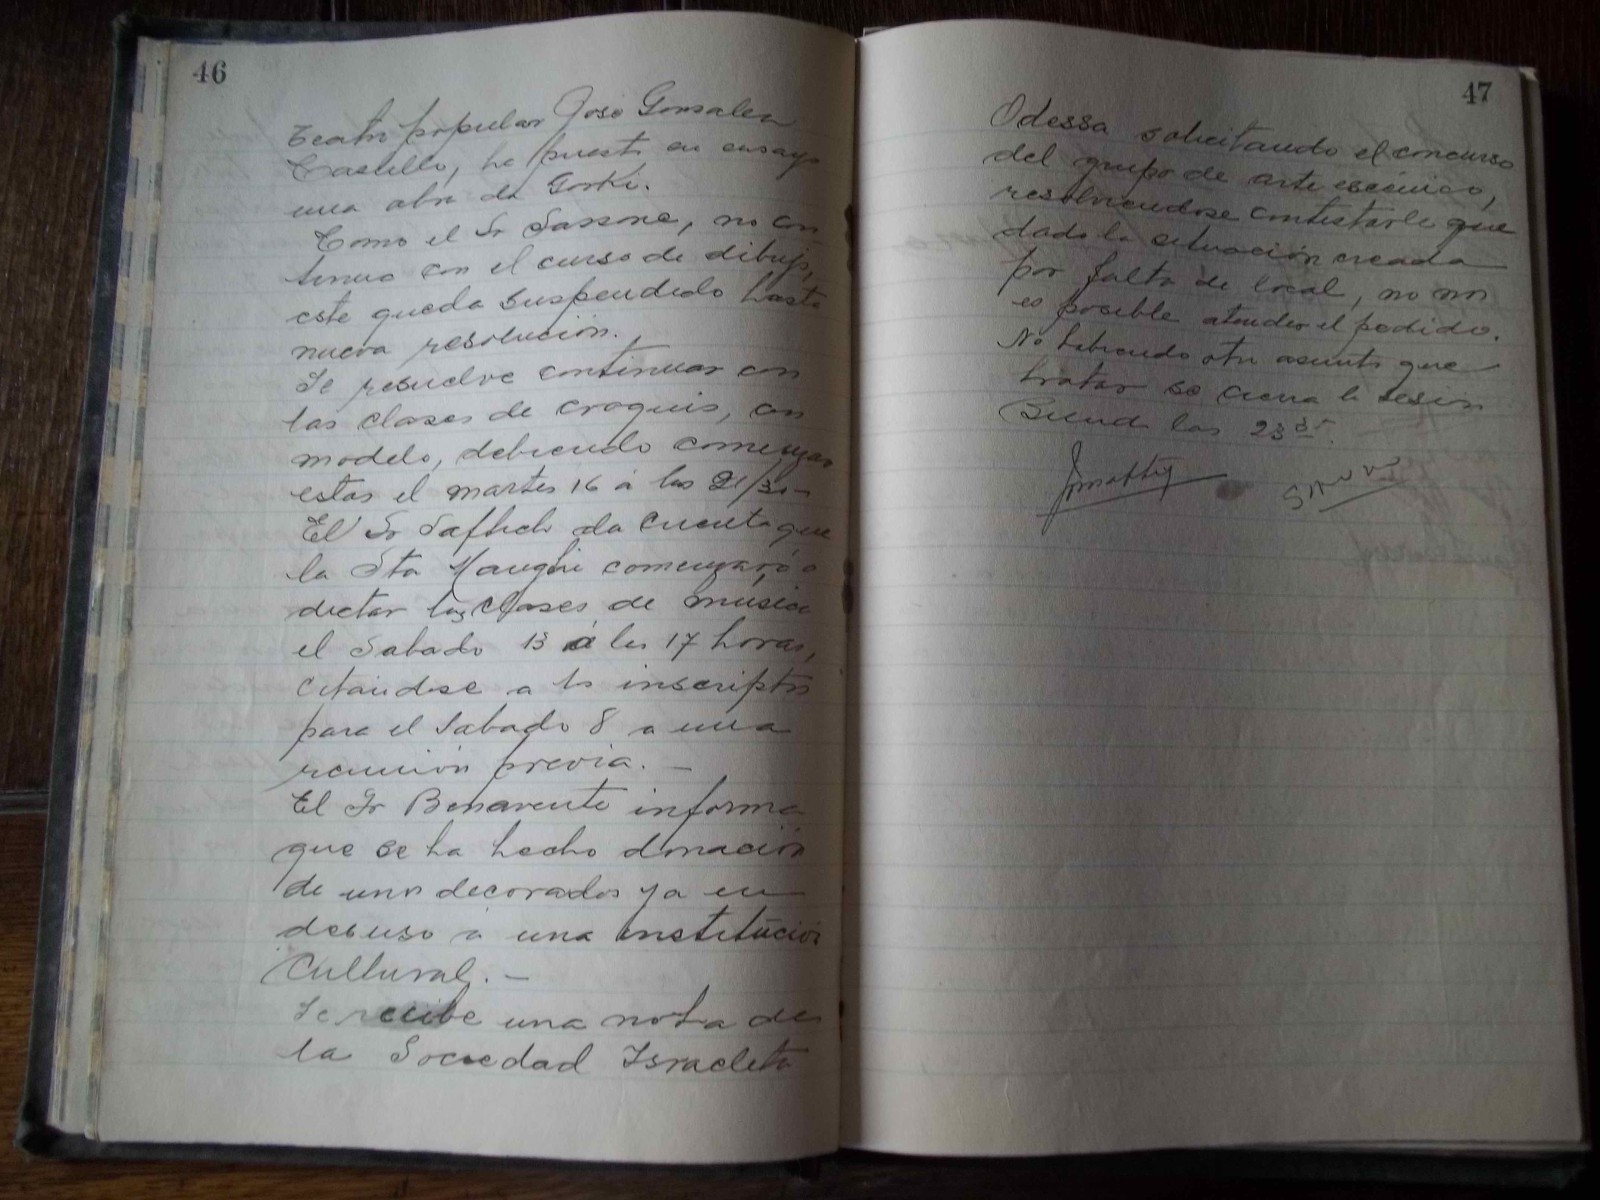 46
Teatro popular Jose Gonsalez
Castillo, ha puesto en ensayo
una obra de Gorki.
Como el Sr Sassone, no con
tinua con el curso de dibujo,
este queda suspendido hasta
nueva resolución.
Se resuelve continuar con
las clases de croquis, con
modelo, debiendo comenzar
estas el martes 16 á las 21/30-
El Sr da cuenta que
la Sta comenzará a
dictar las clases de musica
el Sabado 13 á las 17 horas,
citandose a los inscriptos
para el Sabado 8 a una
reunión previa. -
El Sr Benavente informa
que se ha hecho donación
de unos decorados ya en
desuso á una institución
Cultural. -
Se recibe una nota de
la Sociedad Israelita
47
Odessa solicitando el concurso
del grupo de arte escénico,
resolviendose contestarle que
dado la situación creada
por falta de local, no nos
es posible atender el pedido.
No habiendo otro asunto que
tratar se cierra la sesión
Siendo las 23 35.